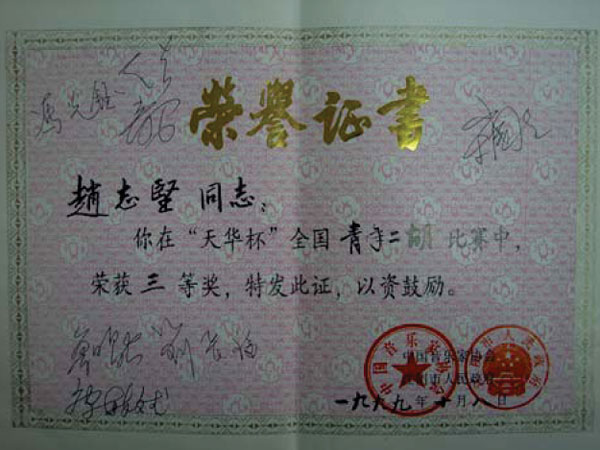 荣譽证書
冯光钰
趙志堅 同志：
你在“天华杯”全国青年二胡比赛中，
荣获三等奖，特发此证，以资鼓励。
中国音乐家协会
市人民政府
一九九九年十月八日